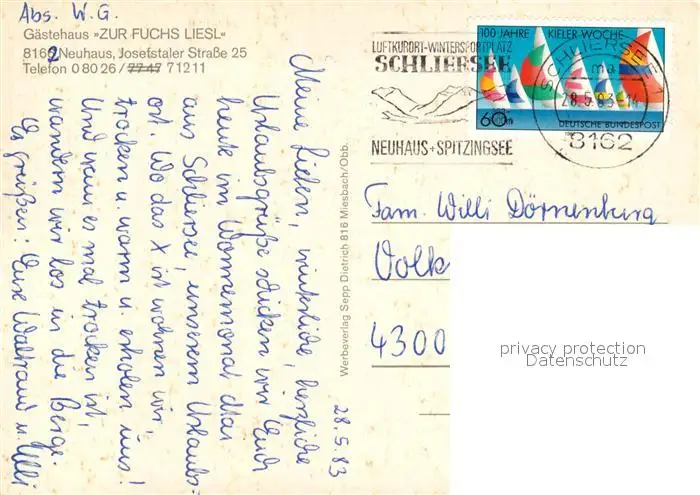 Abs. W. G.
Gästehaus »ZUR FUCHS LIESL«
8162 Neuhaus, Josefstaler Straße 25
Telefon 0 80 26 / 7747 71211
28.5.83
Meine Lieben, mütterliche, herzliche
Urlaubsgrüße schicken wir Euch
heute im Wonnemonat Mai
aus Schliersee, unserem Urlaubs-
ort. Wo das X ist wohnen wir,
trocken u. warm u. erholen uns!
Und wenn es mal trocken ist,
wandern wir los in die Berge.
Es grüßen: Eure Waltraud u. Willi
Werbeverlag Sepp Dietrich 816 Miesbach/Obb.
LUFTKURORT-WINTERSPORTPLATZ
SCHLIERSEE
NEUHAUS+SPITZINGSEE
100 JAHRE KIELER WOCHE
60
DEUTSCHE BUNDESPOST
SCHLIERSEE
ma
28.5.83-14
8162
Fam. Willi Dörnenburg
Volk
4300
privacy protection
Datenschutz